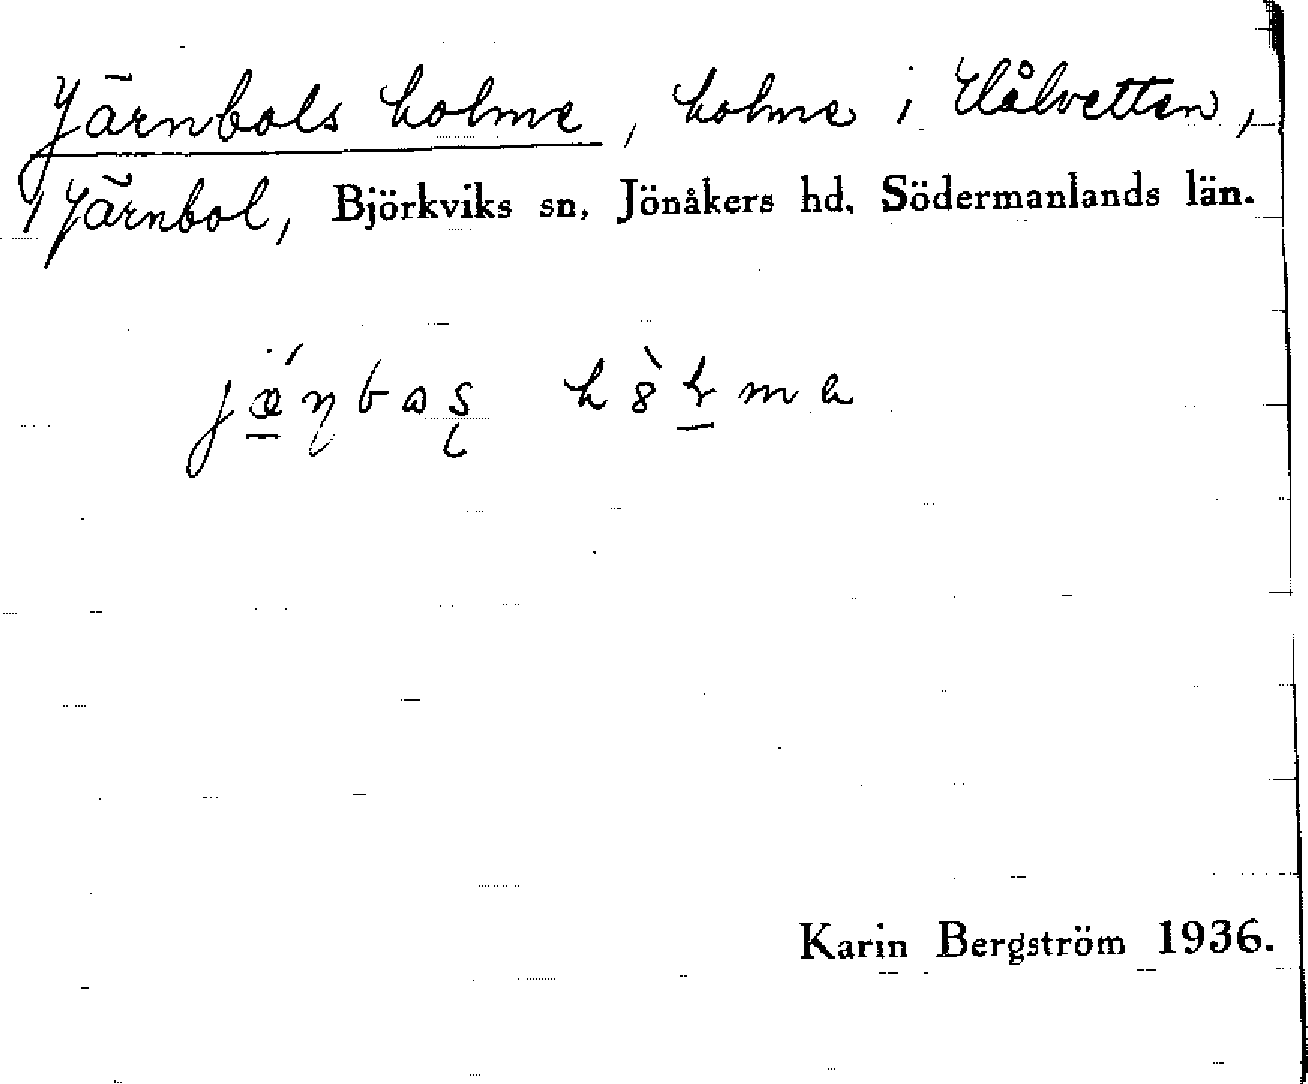 Järnbols holme, holme i Hålvetten,
Järnbol, Björkviks sn, Jönåkers hd, Södermanlands län.
Karin Bergström 1936.